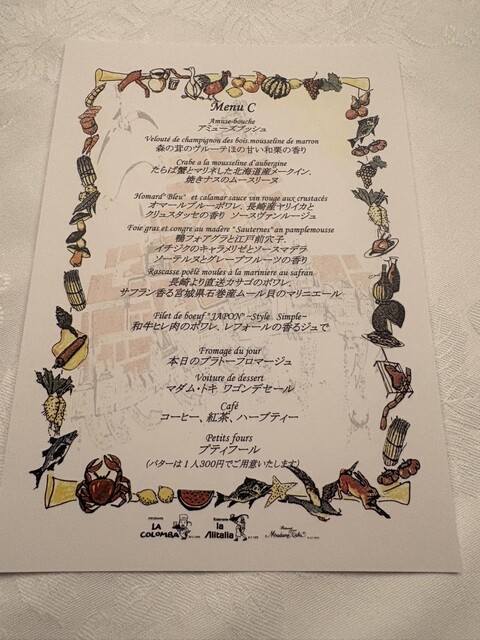 Menu C
Amuse-bouche
アミューズブッシュ
Velouté de champignon des bois mousseline de marron
森の茸のヴルーテほの甘い和栗の香り
Crabe a la mousseline d'aubergine
たらば蟹とマリネした北海道産メークイン、
焼きナスのムースリーヌ
Homard"Bleu" et calamar sauce vin rouge aux crustacés
オマールブルーポワレ、長崎産ヤリイカと
クリュスタッセの香り ソースヴァンルージュ
Foie gras et congre au madère "Sauternes" an pamplemousse
鴨フォアグラと江戸前穴子、
イチジクのキャラメリゼとソースマデラ
ソーテルヌとグレープフルーツの香り
Rascasse poêlé moules à la mariniere au safran
長崎より直送カサゴのポワレ、
サフラン香る宮城県石巻産ムール貝のマリニエール
Filet de boeuf "JAPON" ~Style Simple~
和牛ヒレ肉のポワレ、レフォールの香るジュで
Fromage du jour
本日のプラトーフロマージュ
Voiture de dessert
マダム・トキ ワゴンデセール
Café
コーヒー、紅茶、ハーブティー
Petits fours
プティフール
(バターは1人300円でご用意いたします)
LA COLOMBA
la Alitalia
Madame Toki